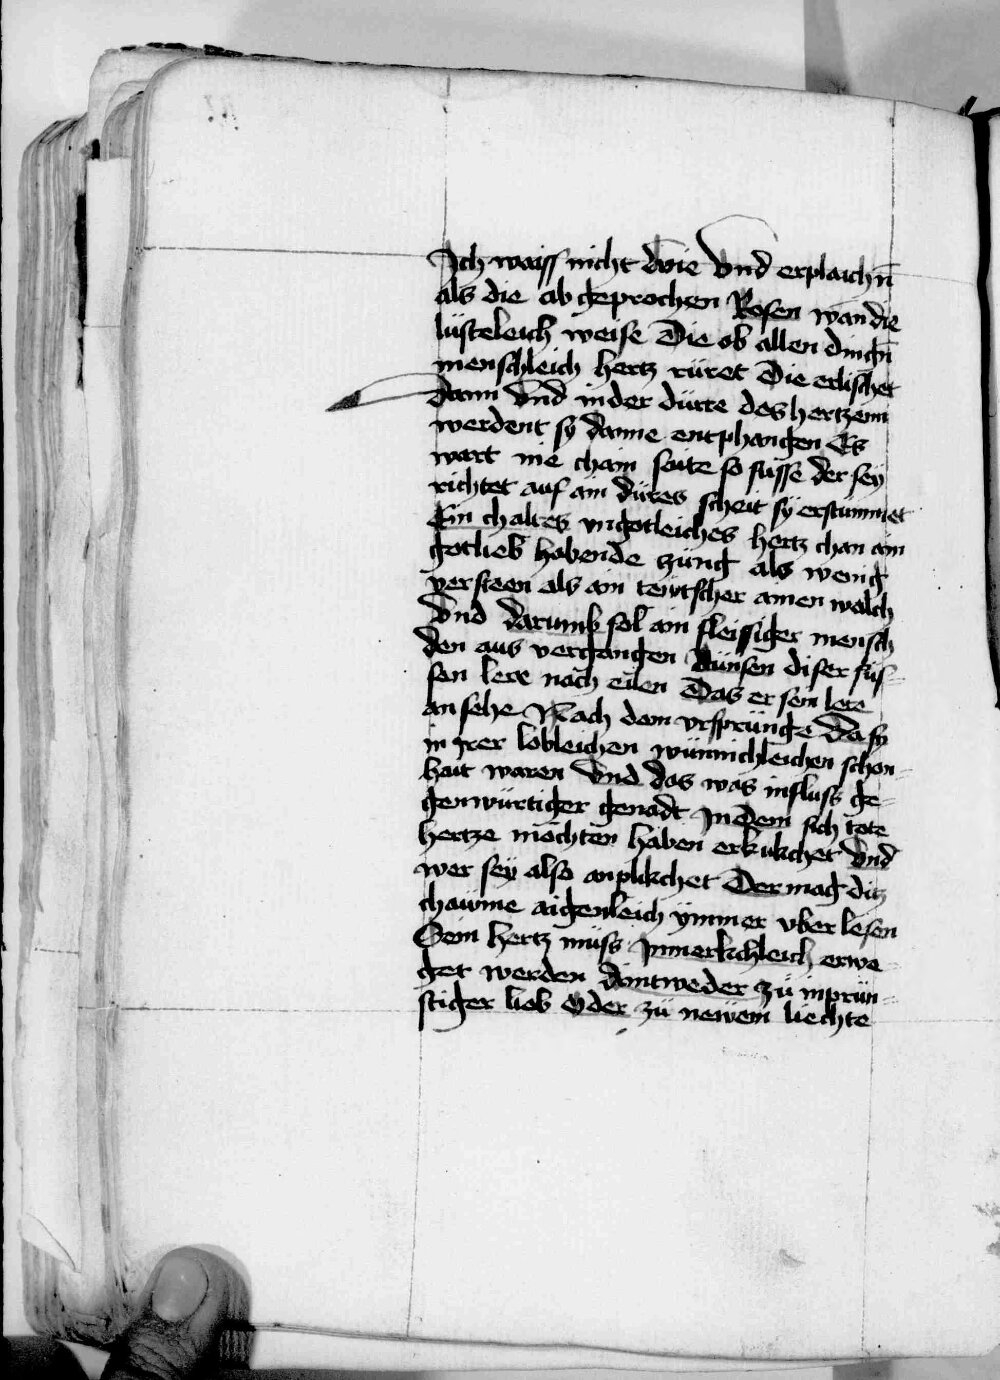 Ich waiss nicht wie Vnd erplaichn̄
als die ab geprochen Rosen wan die
lüsteleich weise Die ob allen dingn̄
menschleich hertz rüret Die erlischet
dann Vnd in der dürre des hertzenn
werdent sy danne entphangen Es
wart nie chain saite so süsse der sey
richtet auf ain düres scheit sy erstummet
Ein chaltes vngotleiches hertz chan ain
gotlieb habende zung als wenig
versteen als ain tewtscher ainen walch
Vnd darumb sol ain fleissiger mensch
den aus vergangen Rünsen diser süs-
sen lere nach eilen Das er sein lere
an sehe Nach dem vrsprünge Da sy
in yrer lobleichen wünnichleichen schon-
hait waren Vnd das was influss ge-
genwürtiger genadt In Dem sich tote
hertze möchten haben erkukchet Vnd
wer sey also anplikchet Der mag ditz
chawme aigenleich ymmer vber lesen
Sein hertz müss Innerkchleich erwe-
get werden aintweder zü inprün-
stiger lieb Oder zü newem liechte